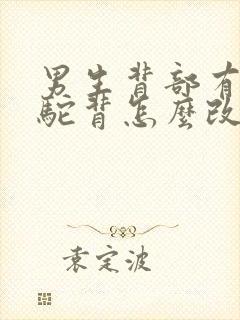 男生背部有
駝背怎麼改
袁定波